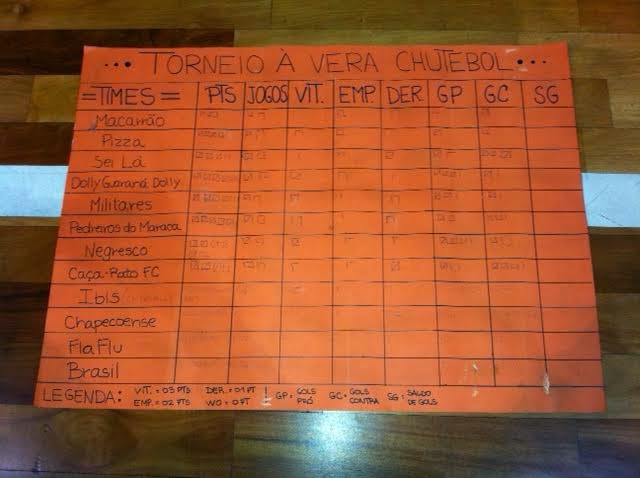 TORNEIO À VERA CHUTEBOL
=TIMES= PTS JOGOS VIT. EMP. DER. GP GC SG
Macarrão
Pizza
Sei Lá
Dolly Guaraná Dolly
Militares
Pedreiros do Maraca
Negresco
Caça-Rato FC
Ibis
Chapecoense
FlaFlu
Brasil
LEGENDA: VIT. = 03 PTS DER. = 01 PT GP = GOLS PRÓ GC = GOLS CONTRA SG = SALDO DE GOLS
EMP. = 02 PTS WO = 0 PT